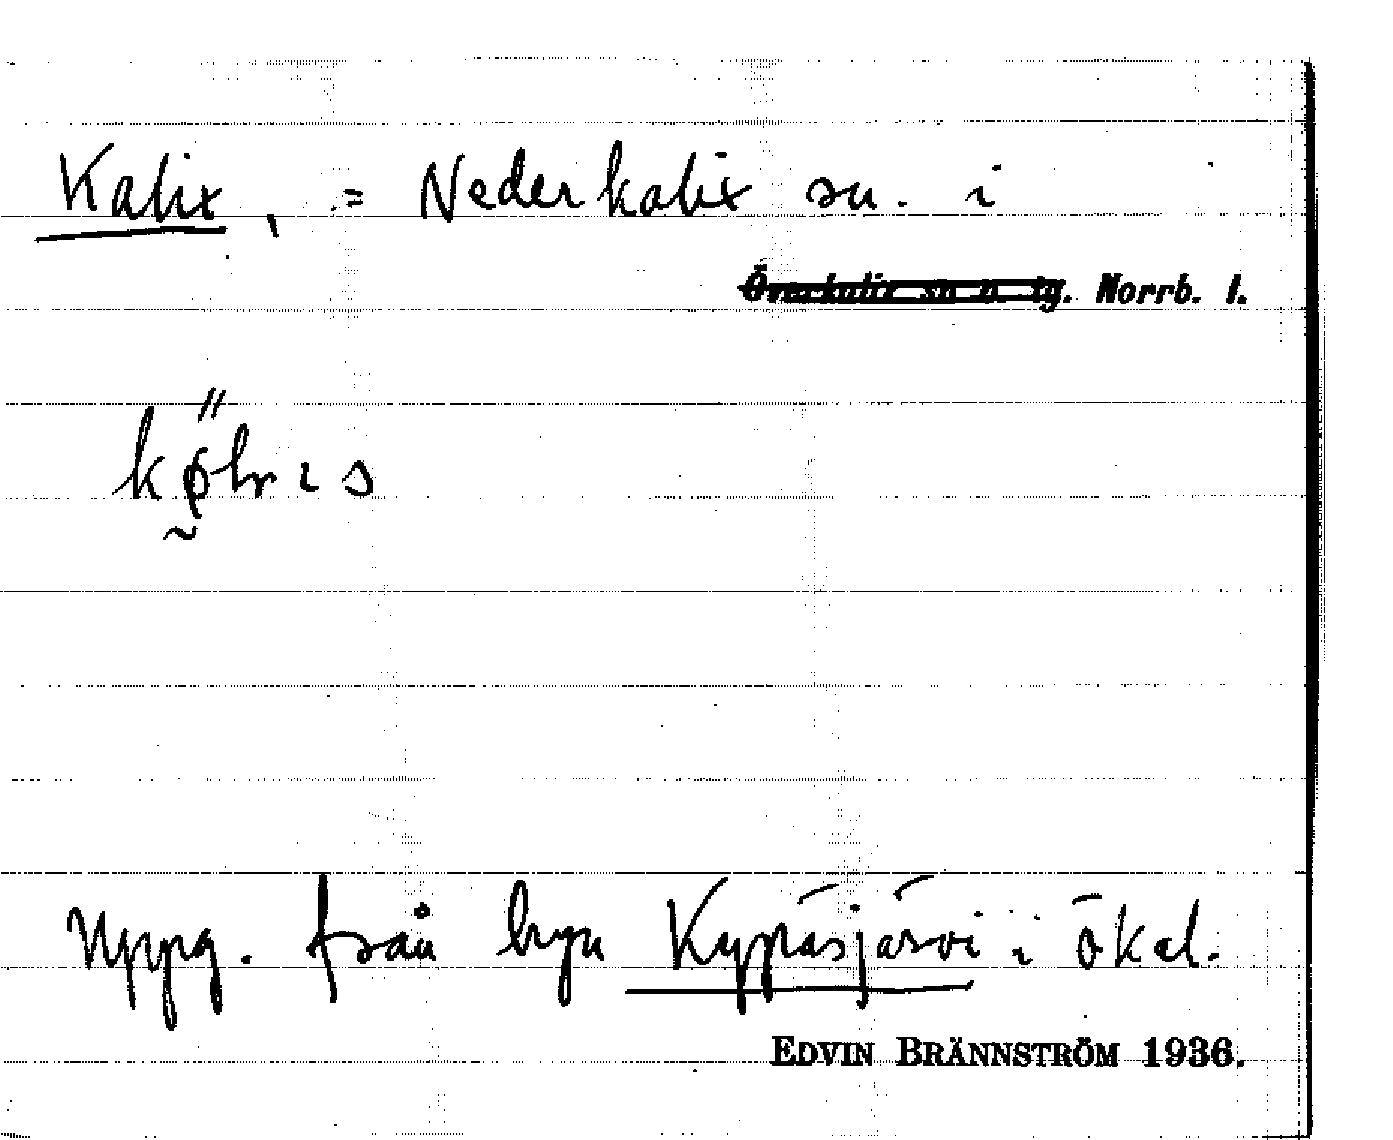 Kalix, = Nederkalix sn. i
Överkalix sn n. tg. Norrb. l.
Uppg. från byn Kypäsjärvi i Ökal.
EDVIN BRÄNNSTRÖM 1936.